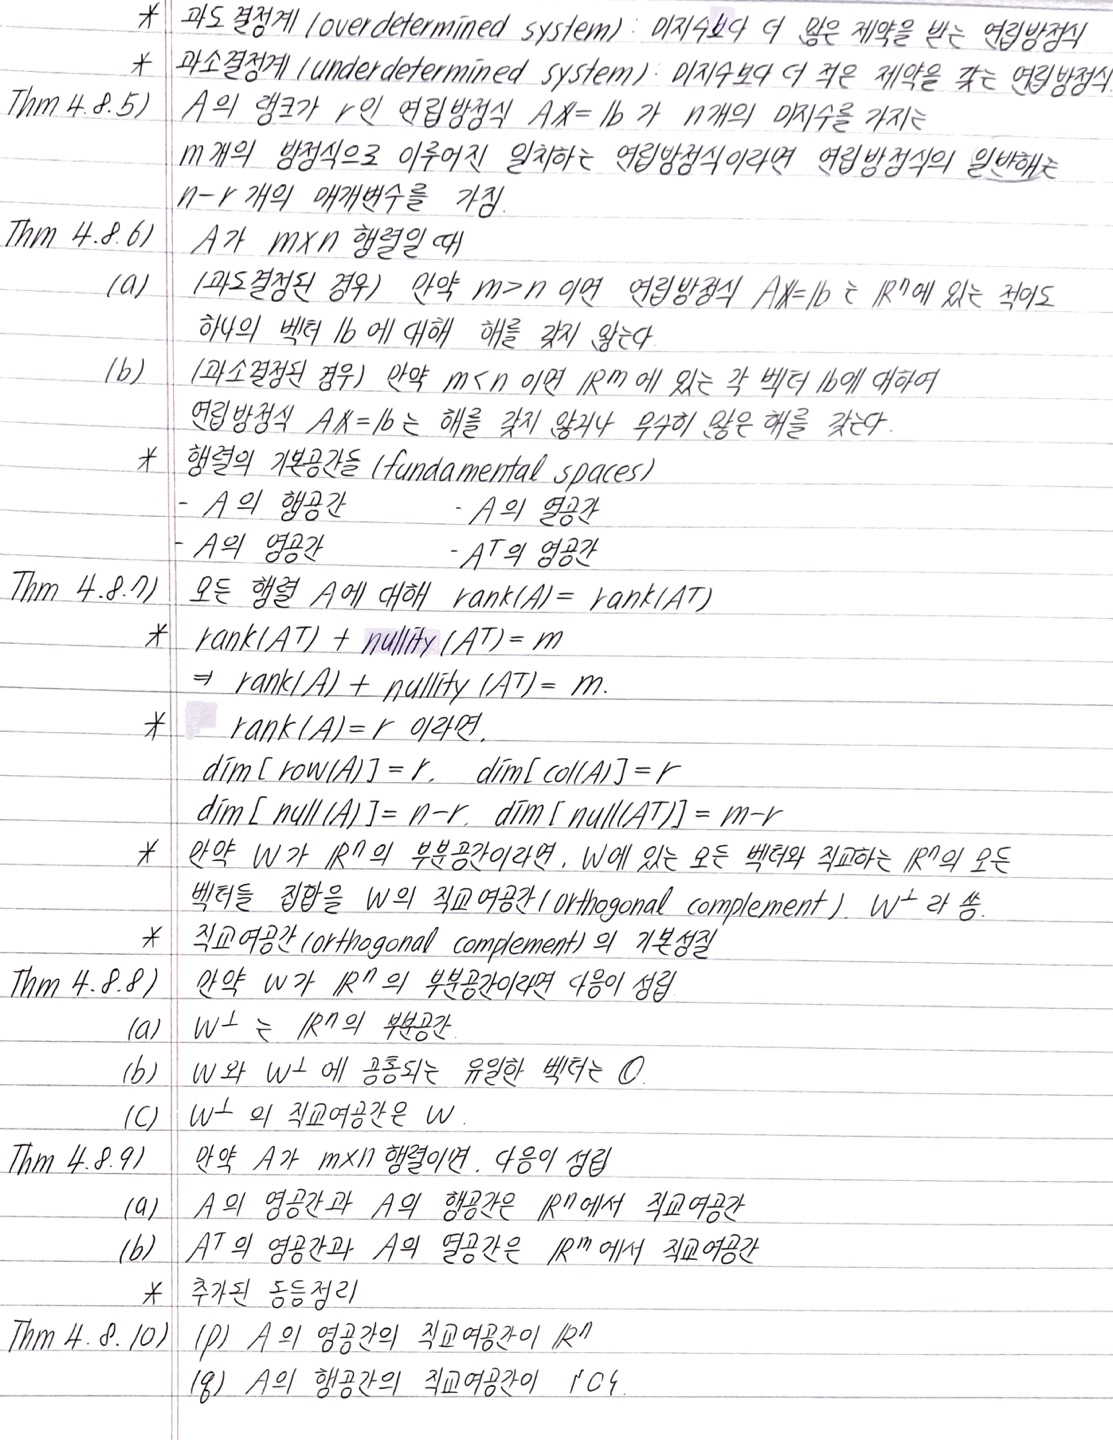 * 과도 결정계 (overdetermined system) : 미지수보다 더 많은 제약을 받는 연립방정식
* 과소결정계 (underdetermined system) : 미지수보다 더 적은 제약을 갖는 연립방정식
Thm 4.8.5) A의 랭크가 r인 연립방정식 Ax=b가 n개의 미지수를 가지는
m개의 방정식으로 이루어진 일치하는 연립방정식이라면 연립방정식의 일반해는
n-r 개의 매개변수를 가짐.
Thm 4.8.6) A가 m×n 행렬일 때
(a) (과도결정된 경우) 만약 m>n 이면 연립방정식 Ax=b는 ℝⁿ에 있는 적어도
하나의 벡터 b에 대해 해를 갖지 않는다.
(b) (과소결정된 경우) 만약 m<n 이면 ℝᵐ에 있는 각 벡터 b에 대하여
연립방정식 Ax=b는 해를 갖지 않거나 무수히 많은 해를 갖는다.
* 행렬의 기본공간들 (fundamental spaces)
- A의 행공간 - A의 열공간
- A의 영공간 - Aᵀ의 영공간
Thm 4.8.7) 모든 행렬 A에 대해 rank(A) = rank(Aᵀ)
* rank(Aᵀ) + nullity (Aᵀ) = m
⇒ rank(A) + nullity (Aᵀ) = m.
* rank(A) = r 이라면,
dim[row(A)] = r, dim[col(A)] = r
dim[null(A)] = n-r, dim[null(Aᵀ)] = m-r
* 만약 W가 ℝⁿ의 부분공간이라면, W에 있는 모든 벡터와 직교하는 ℝⁿ의 모든
벡터들 집합을 W의 직교여공간(orthogonal complement). W⊥라 씀.
* 직교여공간(orthogonal complement)의 기본성질
Thm 4.8.8) 만약 W가 ℝⁿ의 부분공간이라면 다음이 성립
(a) W⊥는 ℝⁿ의 부분공간.
(b) W와 W⊥에 공통되는 유일한 벡터는 0.
(c) W⊥의 직교여공간은 W.
Thm 4.8.9) 만약 A가 m×n 행렬이면, 다음이 성립
(a) A의 영공간과 A의 행공간은 ℝⁿ에서 직교여공간
(b) Aᵀ의 영공간과 A의 열공간은 ℝᵐ에서 직교여공간
* 추가된 동등정리
Thm 4.8.10) (p) A의 영공간의 직교여공간이 ℝⁿ
(q) A의 행공간의 직교여공간이 {0}.